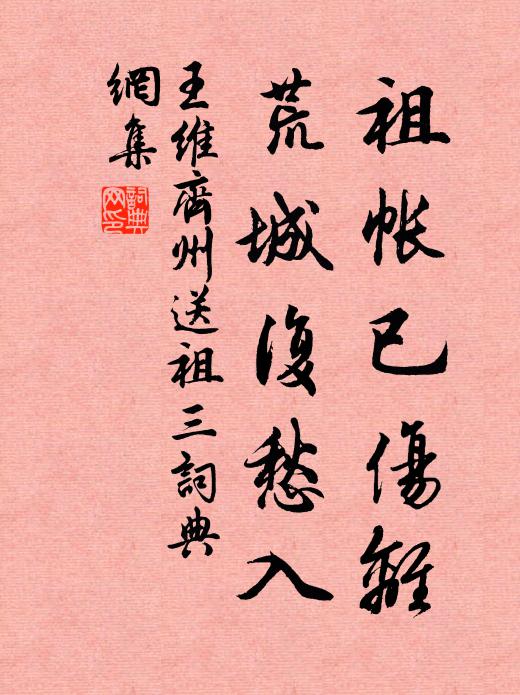 祖帳已傷離
荒城復愁入
王維齊州送祖三詞典
網集
詞典網印